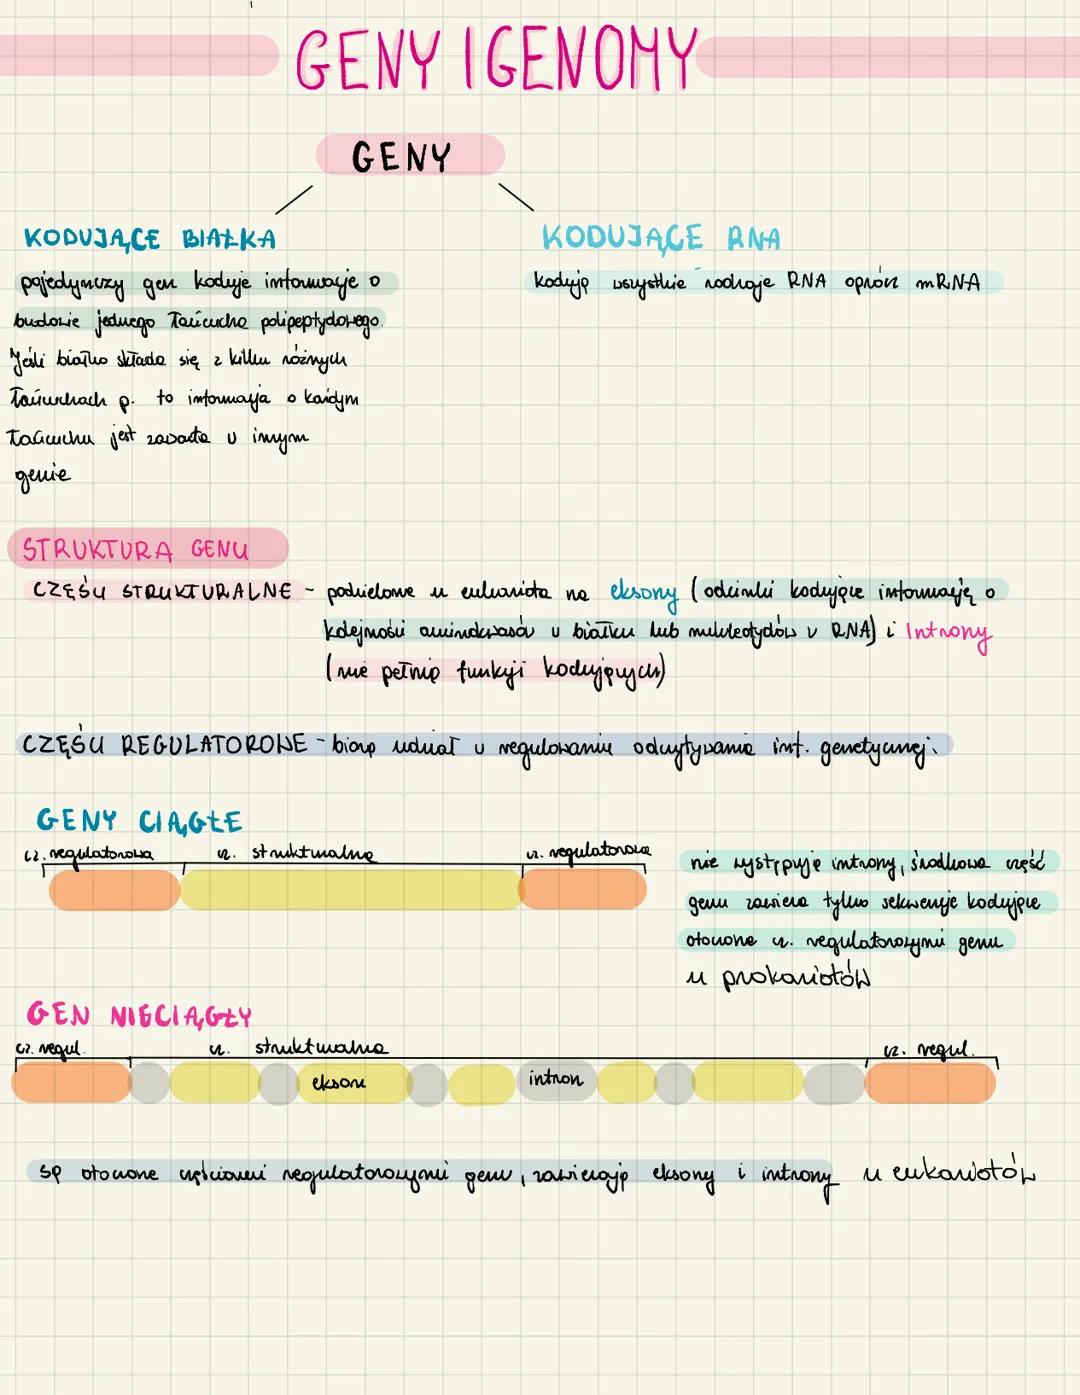 GENY I GENOMY
GENY
KODUJĄCE BIAŁKA
pojedynczy gen koduje informacje o
budowie jednego łańcucha polipeptydowego.
Jeśli białko składa się z kilku różnych
łańcuchach p. to informacja o każdym
łańcuchu jest zawarta w innym
genie
KODUJĄCE RNA
kodują wszystkie rodzaje RNA oprócz mRNA
STRUKTURA GENU
CZĘŚĆ STRUKTURALNE - podzielone u eukariota na eksony (odcinki kodujące informację o
kolejności aminokwasów w białku lub nukleotydów w RNA) i Introny
(nie pełnią funkcji kodujących)
CZĘŚĆ REGULATOROWE - biorą udział w regulowaniu odczytywania inf. genetycznej.
GENY CIĄGŁE
cz. regulatorowa cz. strukturalna cz. regulatorowa
nie występuję introny, środkowa część
genu zawiera tylko sekwencje kodujące
otoczone cz. regulatorowymi genu
u prokariotów
GEN NIECIĄGŁY
cz. regul. cz. strukturalna cz. regul.
ekson intron
są otoczone częściami regulatorowymi genu, zawierają eksony i introny u eukariotów